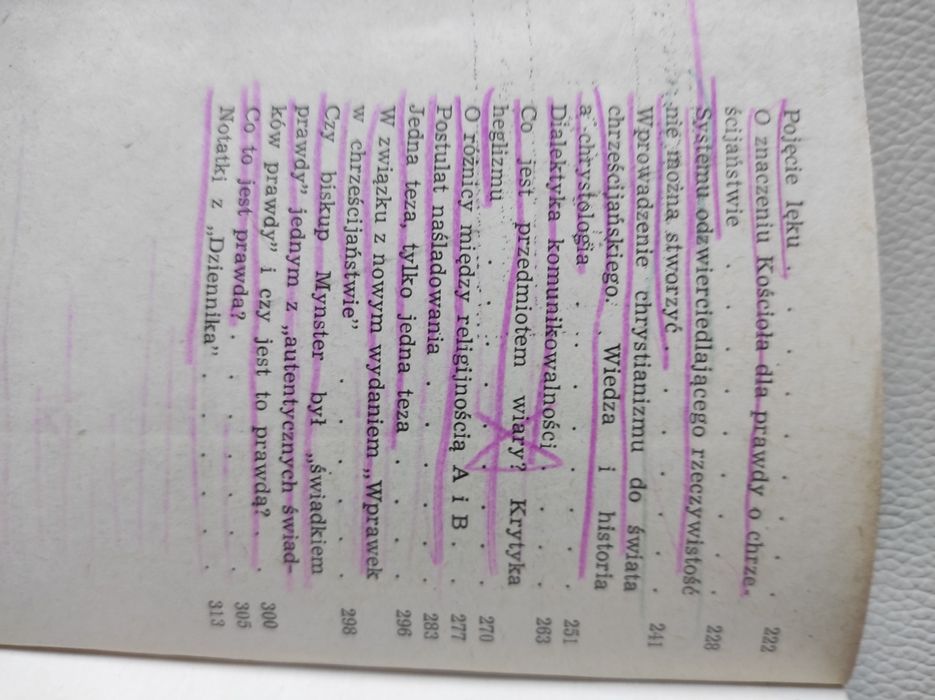 Pojęcie lęku . . . . . . . . . . 222
O znaczeniu Kościoła dla prawdy o chrze-
ścijaństwie . . . . . . . . . . 228
Systemu odzwierciedlającego rzeczywistość
nie można stworzyć . . . . . . . . 241
Wprowadzenie chrystianizmu do świata
chrześcijańskiego. Wiedza i historia
a chrystologia . . . . . . . . . 251
Dialektyka komunikowalności . . . . . 263
Co jest przedmiotem wiary? Krytyka
heglizmu . . . . . . . . . . 270
O różnicy między religijnością A i B . . . 277
Postulat naśladowania . . . . . . . 283
Jedna teza, tylko jedna teza . . . . . 296
W związku z nowym wydaniem „Wprawek
w chrześcijaństwie” . . . . . . . . 298
Czy biskup Mynster był „świadkiem
prawdy” jednym z „autentycznych świad-
ków prawdy” i czy jest to prawdą? . . . 300
Co to jest prawda? . . . . . . . . 305
Notatki z „Dziennika” . . . . . . . 313